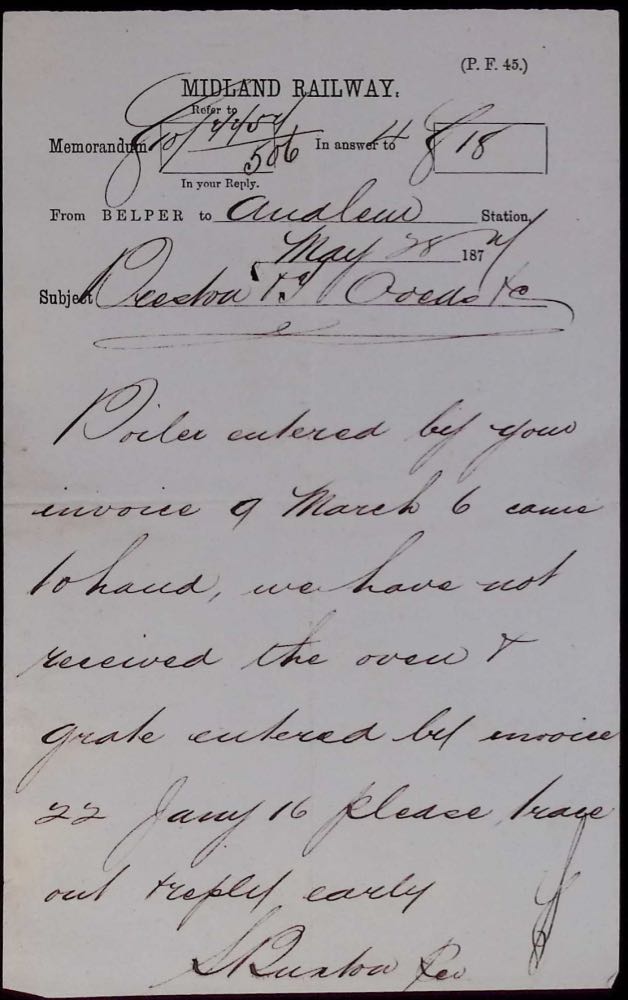 (P. F. 45.)
MIDLAND RAILWAY.
Refer to
Memorandum 4404 / 506 In answer to 18
In your Reply.
From BELPER to Audlem Station,
May 28 1874
Subject Ovens &c
Boiler entered by your
invoice 9 March 6 came
to hand, we have not
received the oven &
grate entered by invoice
22 Jany 16 please trace
out & reply early